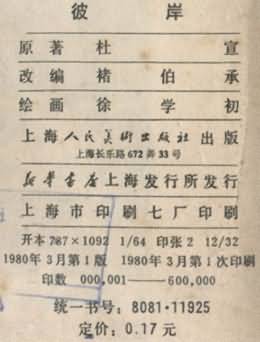 彼岸
原著 杜宣
改编 褚伯承
绘画 徐学初
上海人民美術出版社出版
上海长乐路672弄33号
新华書店上海发行所发行
上海市印刷七厂印刷
开本787×1092 1/64 印张2 12/32
1980年3月第1版 1980年3月第1次印刷
印数 000,001——600,000
统一书号：8081·11925
定价：0.17元